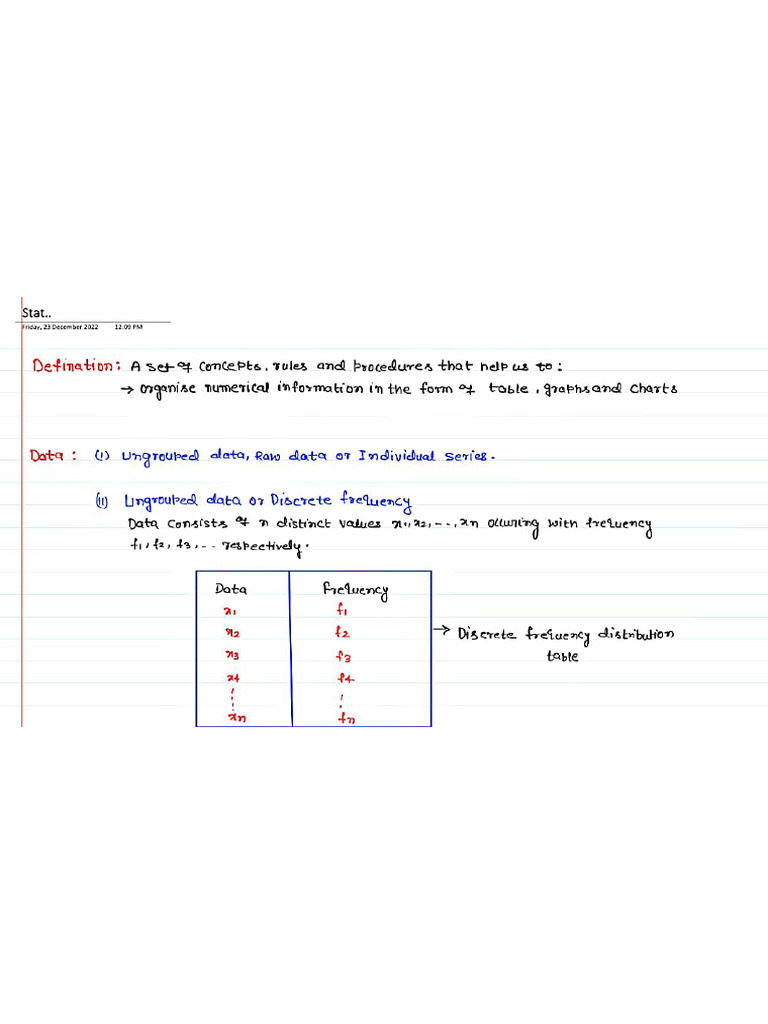 Stat..
Friday, 23 December 2022 12:09 PM
Defination: A set of concepts, rules and procedures that help us to:
→ organise numerical information in the form of table, graphs and charts
Data: (i) Ungrouped data, Raw data or Individual series.
(ii) Ungrouped data or Discrete frequency
Data consists of n distinct values x1, x2, -.., xn occuring with frequency
f1, f2, f3, ... respectively.
Data Frequency
x1 f1
x2 f2
x3 f3
x4 f4
xn fn
→ Discrete frequency distribution
table